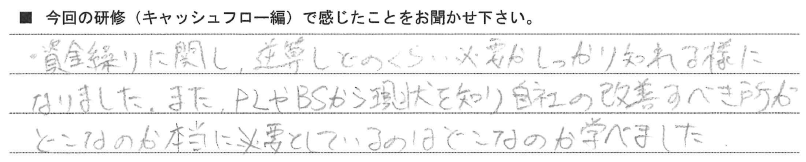 ■ 今回の研修（キャッシュフロー編）で感じたことをお聞かせ下さい。
資金繰りに関し、逆算しどのくらい必要かしっかり知れる様に
なりました。また、PLやBSから現状を知り自社の改善すべき所が
どこなのか本当に必要としているのはどこなのか学べました